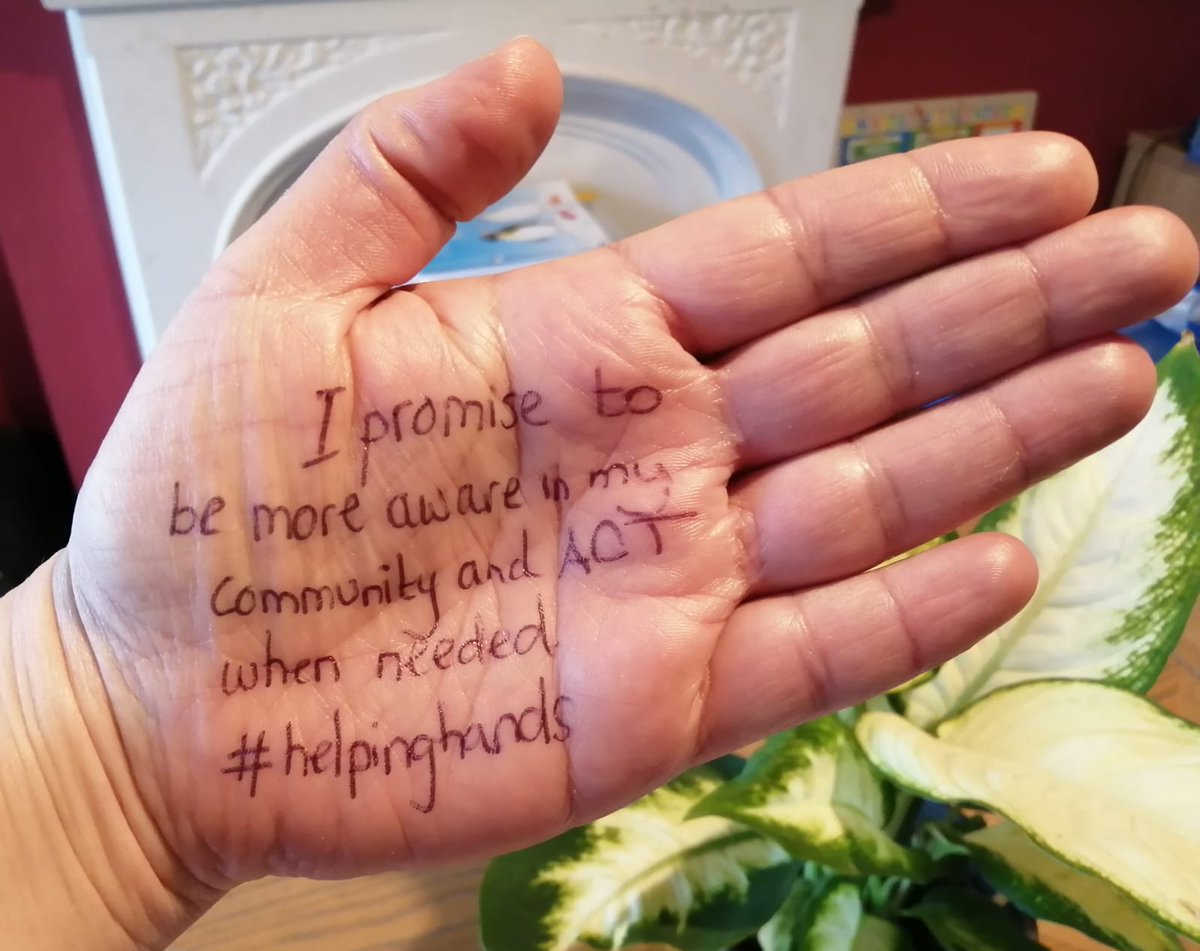 I promise to
be more aware in my
community and ACT
when needed
#helpinghands